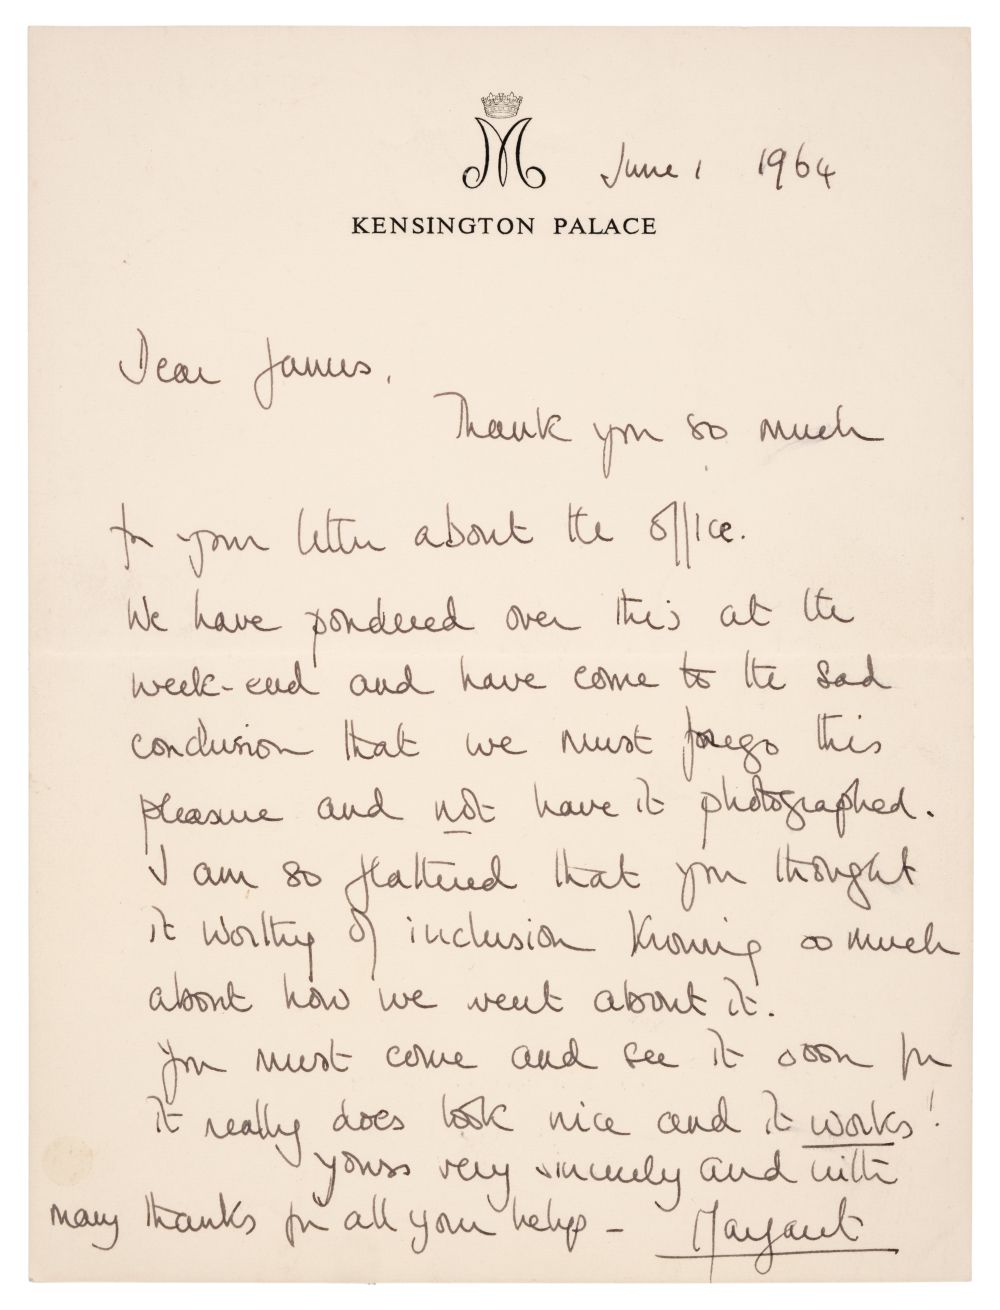 M
June 1 1964
KENSINGTON PALACE
Dear James,
Thank you so much
for your letter about the office.
We have pondered over this at the
week-end and have come to the sad
conclusion that we must forego this
pleasure and not have it photographed.
I am so flattered that you thought
it worthy of inclusion knowing so much
about how we went about it.
You must come and see it soon for
it really does look nice and it works!
yours very sincerely and with
many thanks for all your help - Margaret